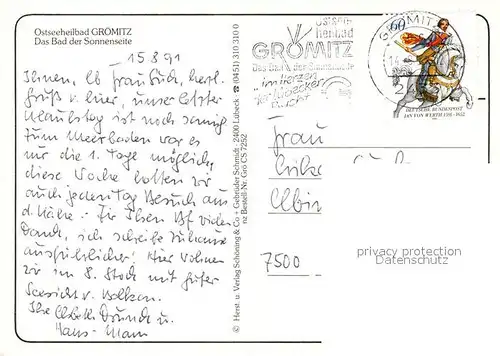 Ostseeheilbad GRÖMITZ
Das Bad der Sonnenseite
15.8.91
Ihnen, lb Frau Such, herzl.
Gruß v. hier, unser letzter
Urlaubstag ist noch sonnig
zum Meerbaden war es
nur die 1. Tage möglich,
diese Woche hatten wir
auch jeden Tag Besuch aus
d. Nähe. Für Ihren Bf vielen
Dank, ich schreibe zuhause
ausführlicher! Hier wohnen
wir im 8. Stock mit guter
Seesicht v. Balkon.
Ihre Elsbeth u.
Hans-
© Herst. u. Verlag Schöning & Co + Gebrüder Schmidt, 2400 Lübeck ☎ (0451) 310 310 0
nz Bestell-Nr. Grö CS 7252
Ostsee
heilbad
GRÖMITZ
Das Bad der Sonnenseite
"im Herzen
der Lübecker
Bucht"
GRÖMITZ
60
2
DEUTSCHE BUNDESPOST
JAN VON WERTH 1591-1652
Frau
7500
privacy protection
Datenschutz